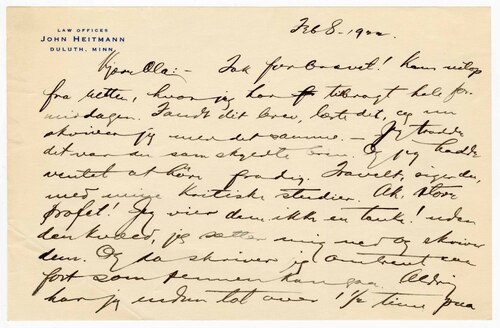 LAW OFFICES
JOHN HEITMANN
DULUTH, MINN.
Feb 8 - 1900.
Kjære Ola; - Tak for brevet! Kom netop
fra retten, hvor jeg har tilbragt hele for-
middagen. Fandt dit brev, læste det, og nu
skriver jeg med det samme. - Jeg trodde
det var du som skyldte brev. Og jeg hadde
ventet at høre fra dig. Travelt, siger du,
med kritiske studier. Ak, store
profet! Jeg vier dem ikke en tanke! uden
den kvæld, jeg sætter mig ned og skriver
dem. Og da skriver jeg omtrent saa
fort som pennen kan gaa. Aldrig
har jeg endnu tat over 1½ time paa